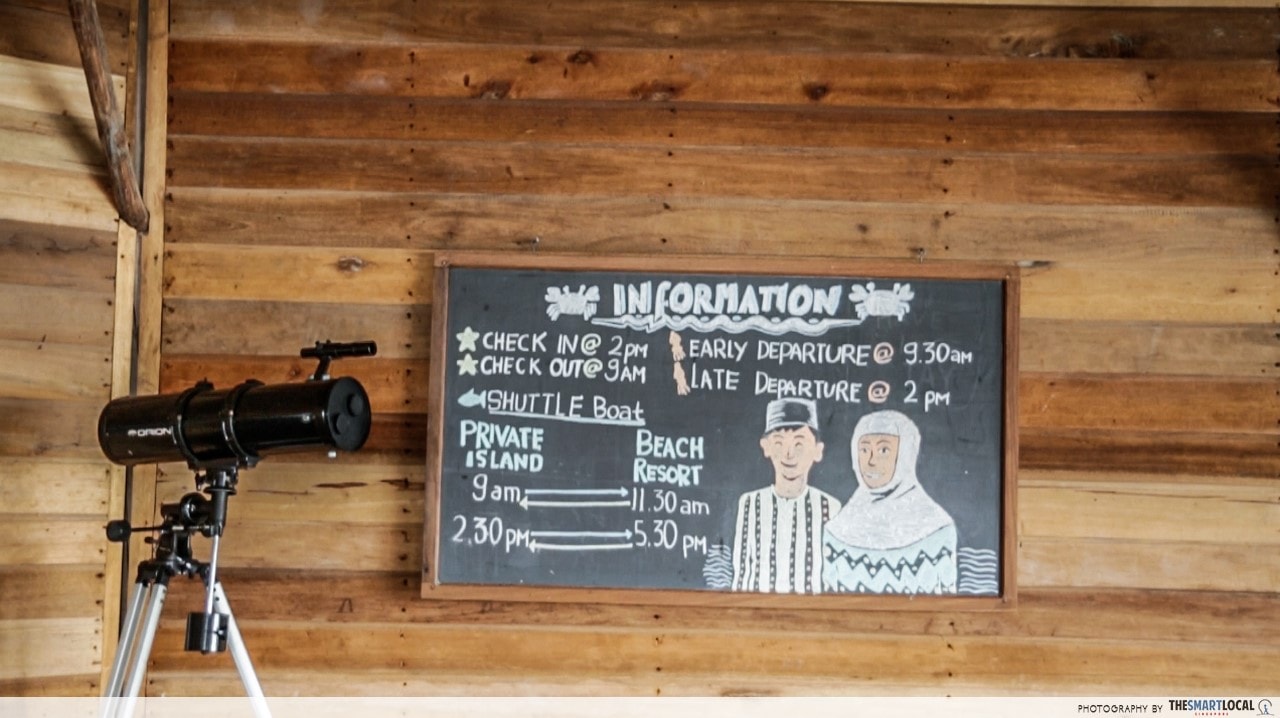 INFORMATION
CHECK IN @ 2PM
CHECK OUT @ 9AM
EARLY DEPARTURE @ 9.30am
LATE DEPARTURE @ 2 pm
SHUTTLE Boat
PRIVATE ISLAND
BEACH RESORT
9am 11.30 am
2.30 PM 5.30 PM
ORION
PHOTOGRAPHY BY THESMARTLOCAL
SINGAPORE